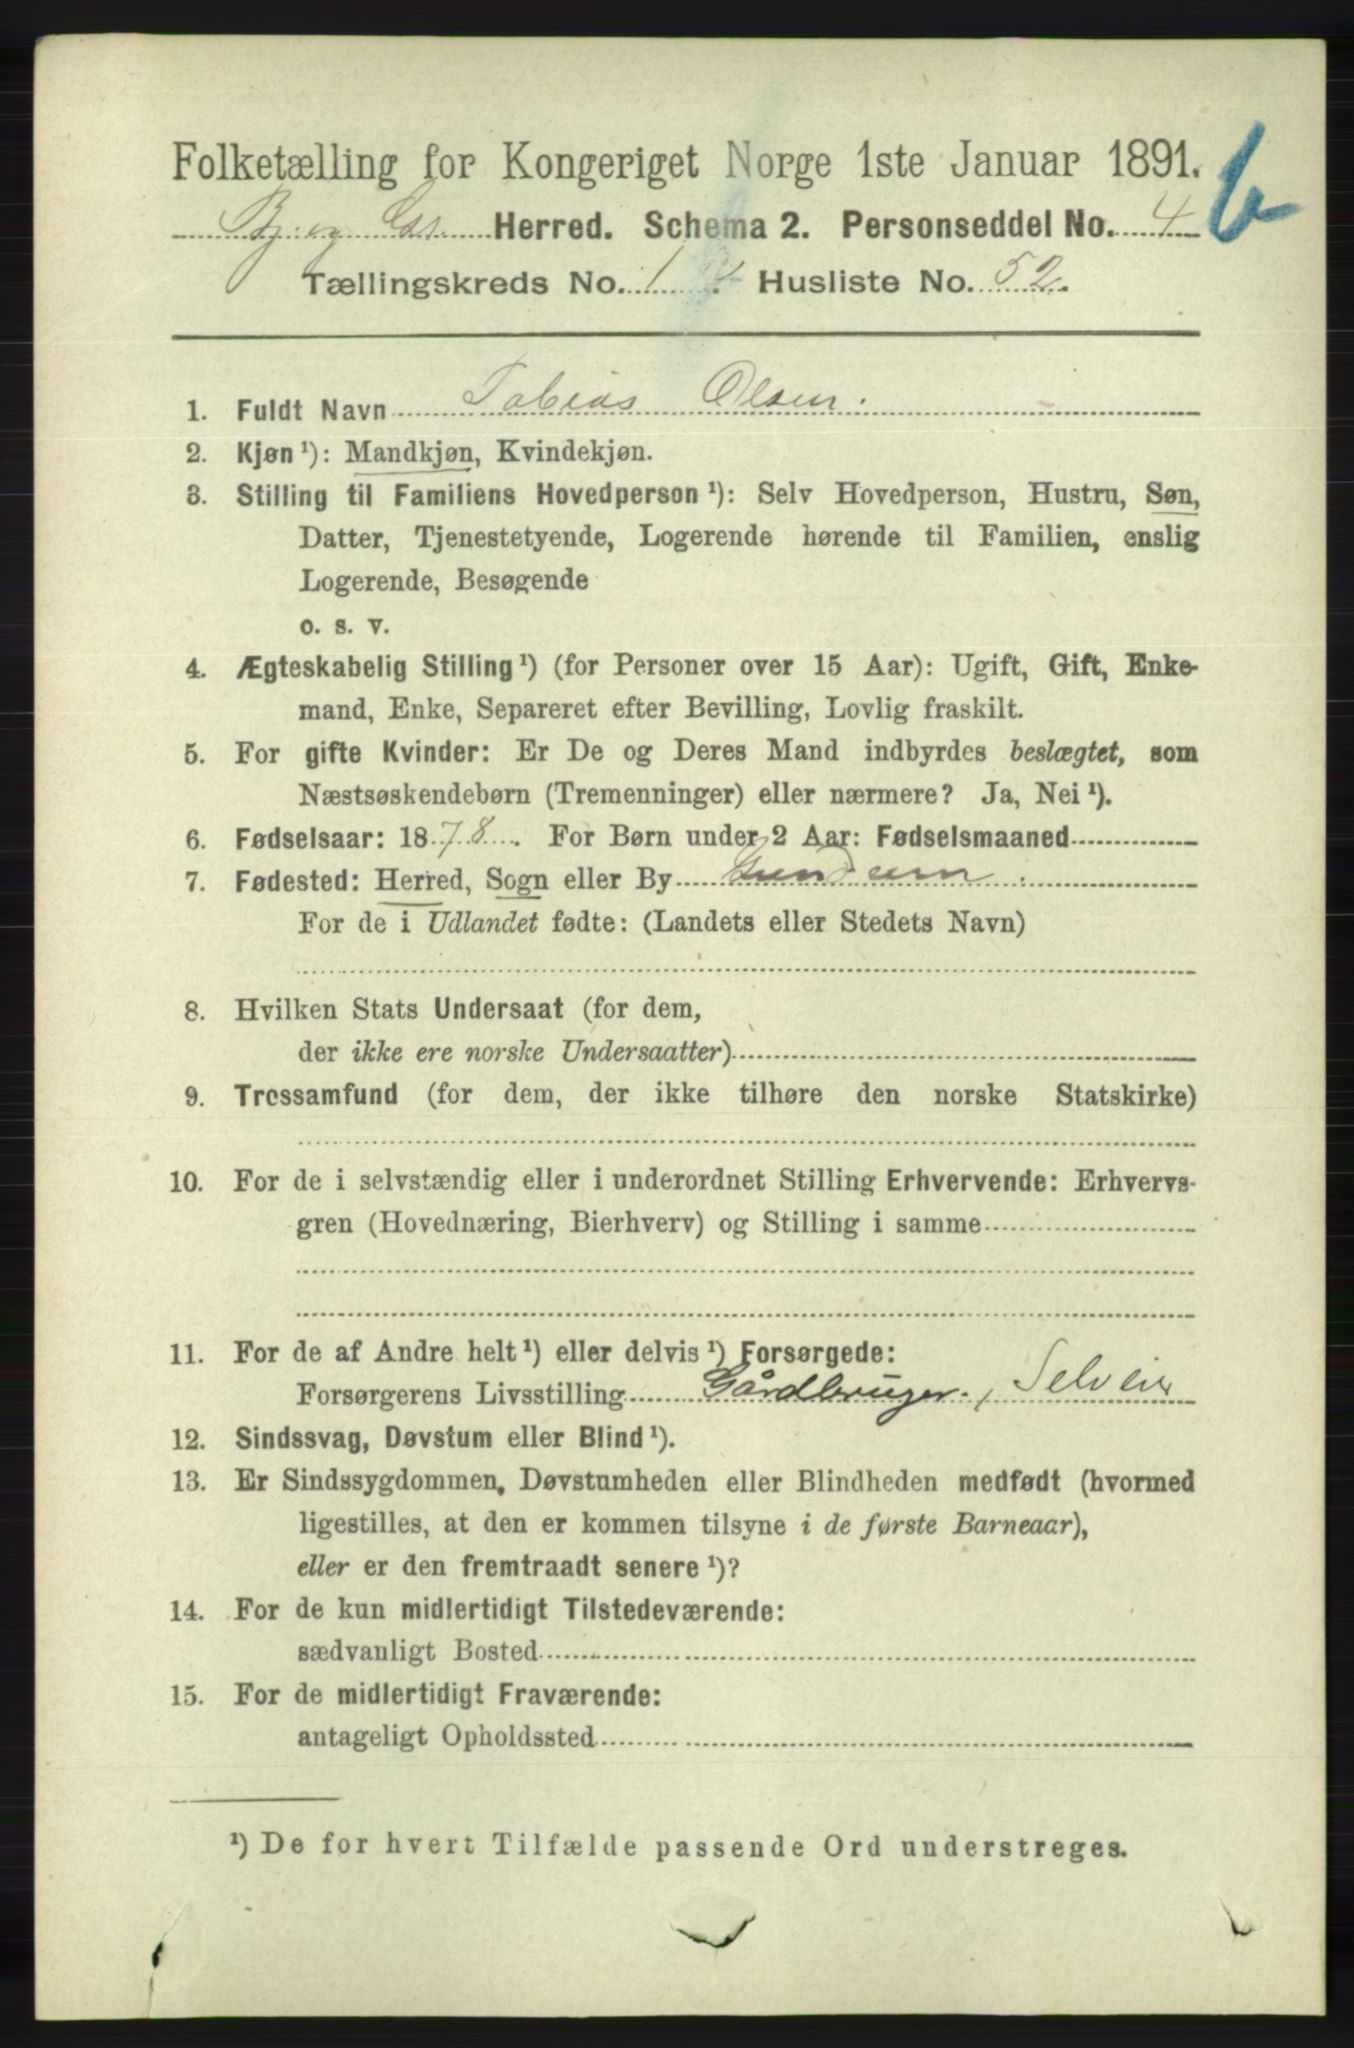 Folketælling for Kongeriget Norge 1ste Januar 1891.
b
Bj. og Herred. Schema 2. Personseddel No. 4
Tællingskreds No. 1. Husliste No. 52.
1. Fuldt Navn Tobias Olsen.
2. Kjøn ¹): Mandkjøn, Kvindekjøn.
3. Stilling til Familiens Hovedperson ¹): Selv Hovedperson, Hustru, Søn,
Datter, Tjenestetyende, Logerende hørende til Familien, enslig
Logerende, Besøgende
o. s. v.
4. Ægteskabelig Stilling ¹) (for Personer over 15 Aar): Ugift, Gift, Enke-
mand, Enke, Separeret efter Bevilling, Lovlig fraskilt.
5. For gifte Kvinder: Er De og Deres Mand indbyrdes beslægtet, som
Næstsøskendebørn (Tremenninger) eller nærmere? Ja, Nei ¹).
6. Fødselsaar: 1878. For Børn under 2 Aar: Fødselsmaaned
7. Fødested: Herred, Sogn eller By
For de i Udlandet fødte: (Landets eller Stedets Navn)
8. Hvilken Stats Undersaat (for dem,
der ikke ere norske Undersaatter)
9. Trossamfund (for dem, der ikke tilhøre den norske Statskirke)
10. For de i selvstændig eller i underordnet Stilling Erhvervende: Erhvervs-
gren (Hovednæring, Bierhverv) og Stilling i samme
11. For de af Andre helt ¹) eller delvis ¹) Forsørgede:
Forsørgerens Livsstilling Gårdbruger, Selveier
12. Sindssvag, Døvstum eller Blind ¹).
13. Er Sindssygdommen, Døvstumheden eller Blindheden medfødt (hvormed
ligestilles, at den er kommen tilsyne i de første Barneaar),
eller er den fremtraadt senere ¹)?
14. For de kun midlertidigt Tilstedeværende:
sædvanligt Bosted
15. For de midlertidigt Fraværende:
antageligt Opholdssted
¹) De for hvert Tilfælde passende Ord understreges.